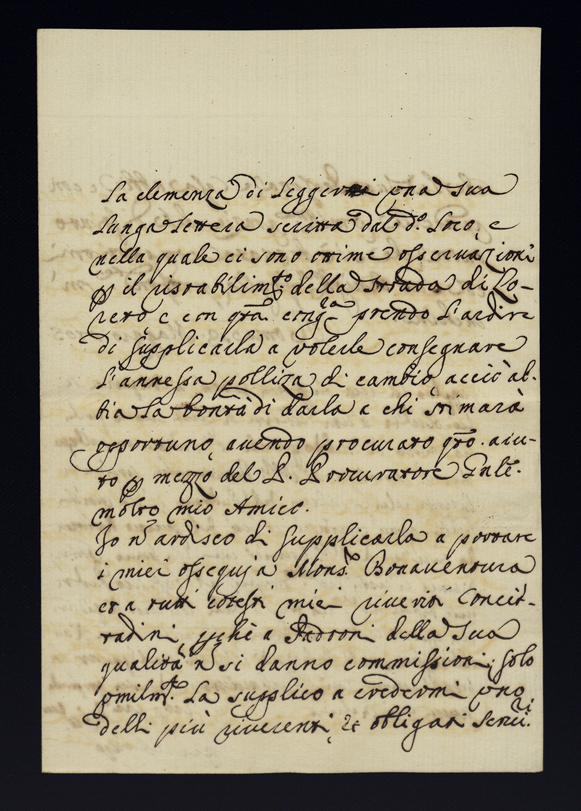 La clemenza di leggermi una Sua
lunga lettera scritta dal d.º loco, e
nella quale ci sono ottime osseruazioni
p il ristabilim.to della strada di Lo-
uero, e con q.ta cong.ra prendo l'ardire
di supplicarla a uolerle consegnare
l'annessa polliza di cambio, acciò ab-
bia la bontà di darla a chi stimarà
opportuno, auendo procurato q.to aiu-
to p mezzo del P. Procuratore Gnle.
molto mio Amico.
Io n ardisco di supplicarla a portare
i miei ossequj a Mons.r Bonauentura
et a tutti cotesti miei riueriti Concit-
tadini, pchè a Padroni della Sua
qualità n si danno commissioni, solo
umilm.te La supplico a credermi uno
delli più riuerenti, & obligati Seru.ri